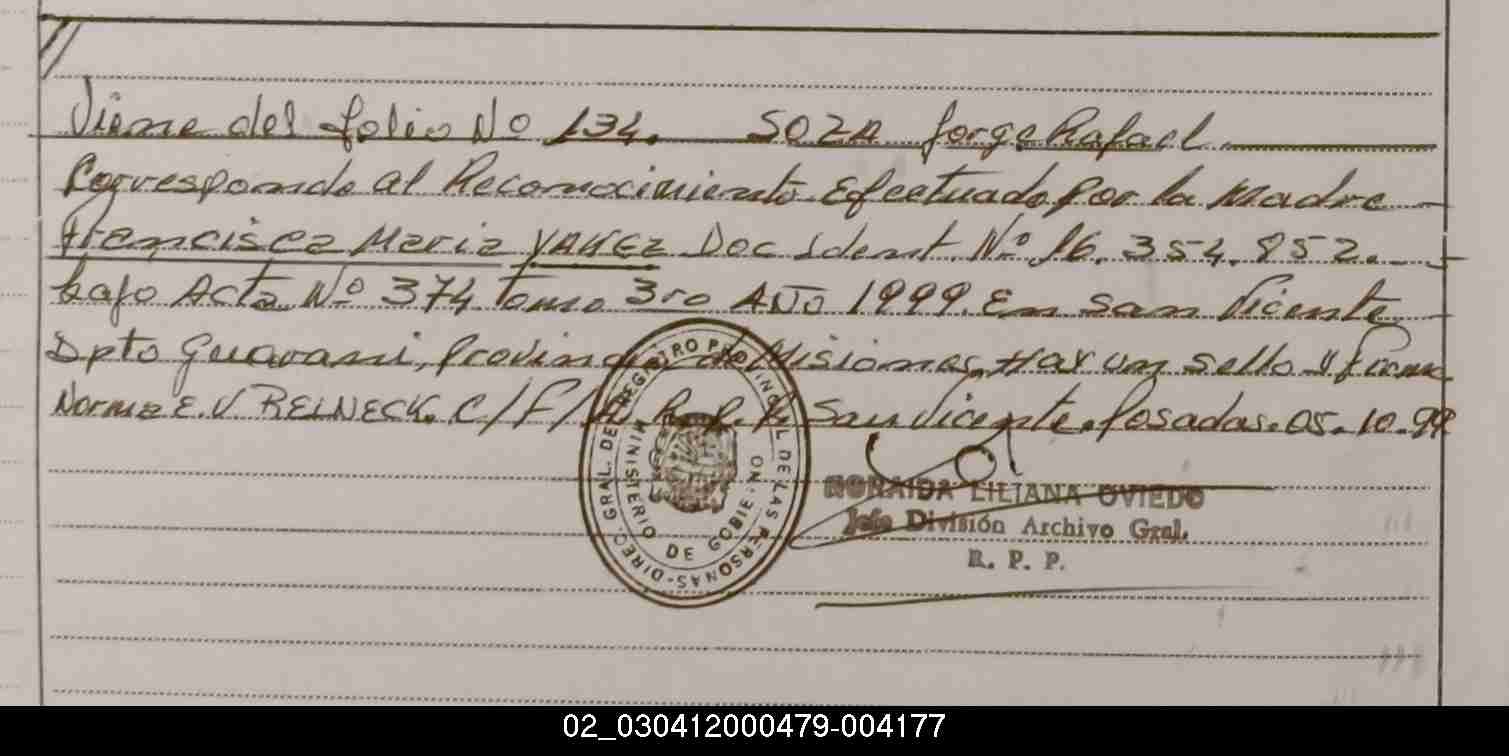 //
Viene del folio No 134. SOZA Jorge Rafael
Corresponde al Reconocimiento Efectuado por la Madre
Francisca Maria YAÑEZ Doc Ident. Nº 16.354.852.
bajo Acta Nº 374 Tomo 3ro AÑO 1999. En San Vicente
Dpto Guarani, Provincia de Misiones, Hay un sello y firma
Norma E. V REINECK. C/F/ R. P. P. San Vicente. Posadas. 05. 10. 99
DIREC. GRAL. DEL REGISTRO PROVINCIAL DE LAS PERSONAS
MINISTERIO DE GOBIERNO
NORAIDA LILIANA OVIEDO
Jefe División Archivo Gral.
R. P. P.
02_030412000479-004177